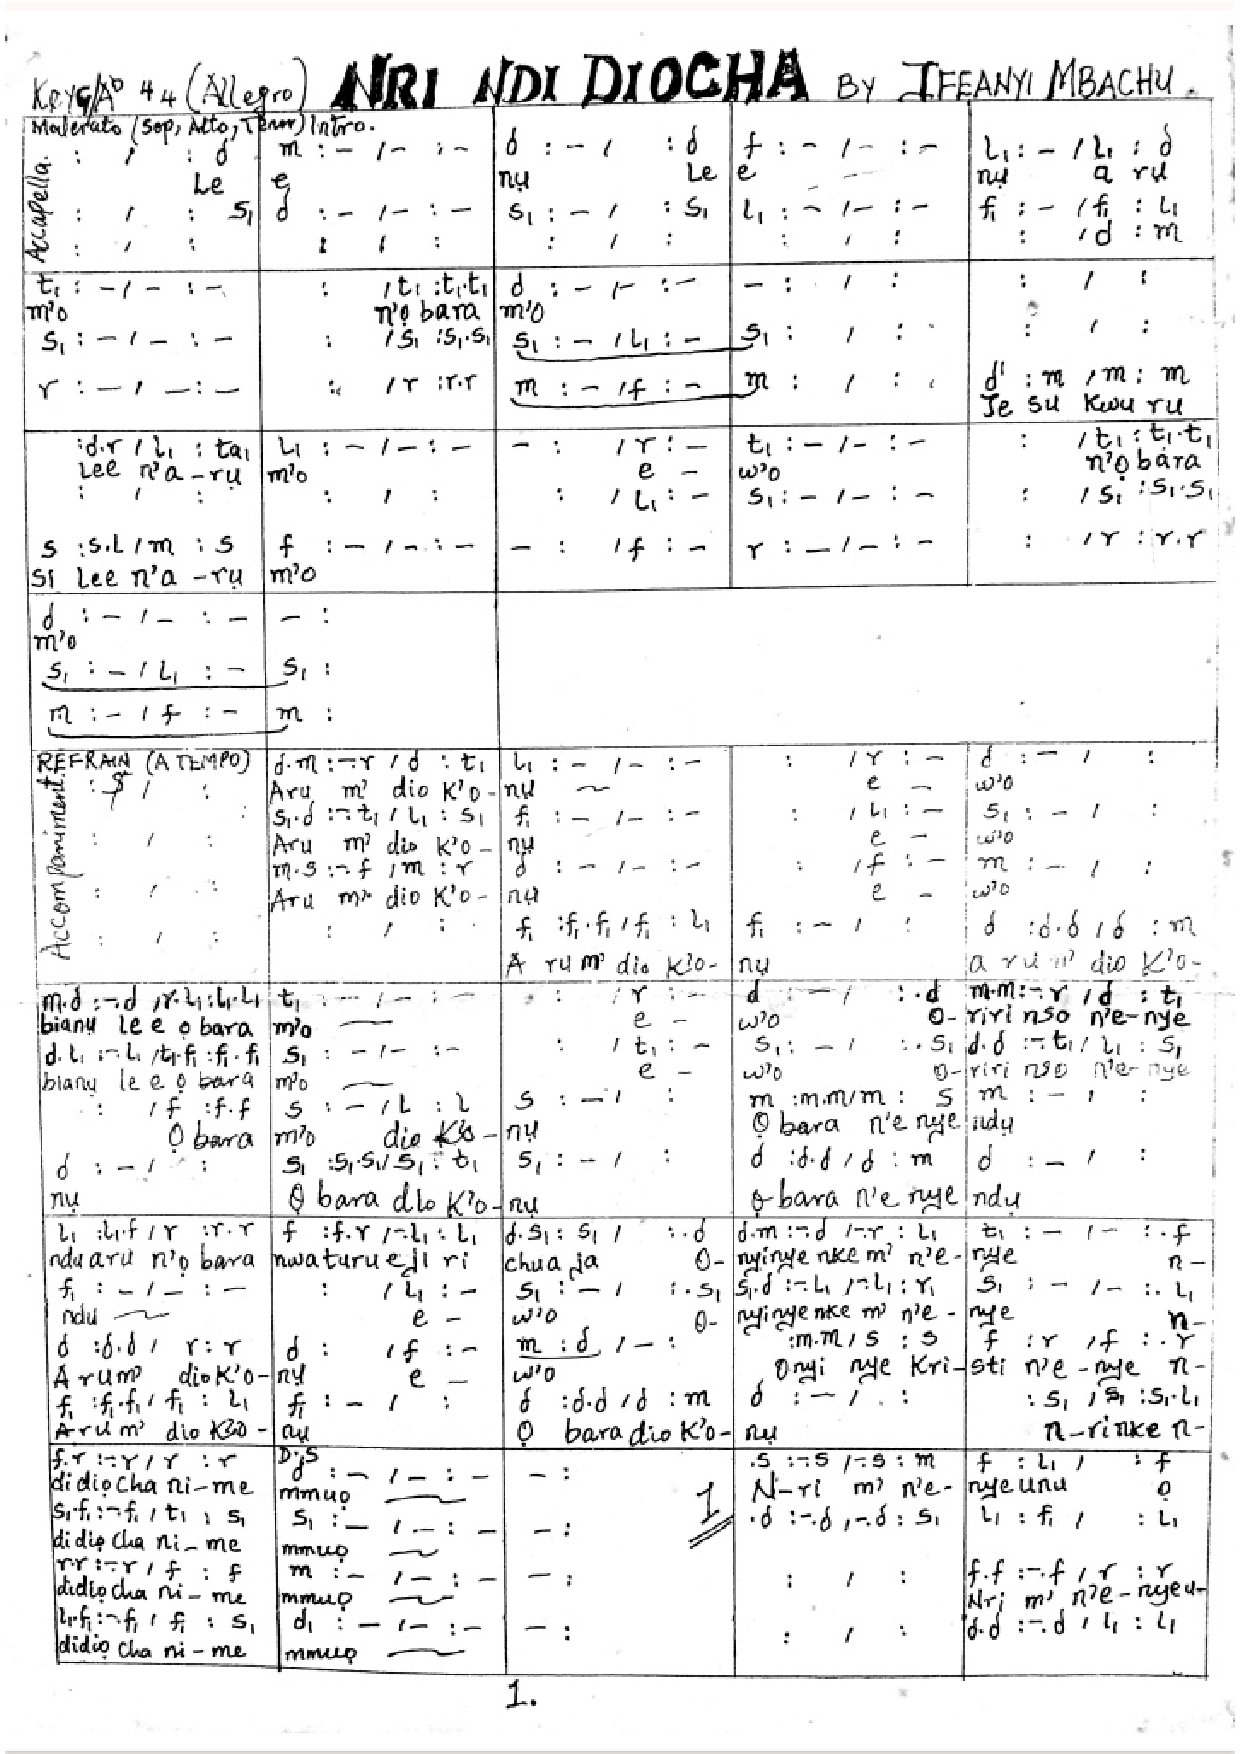 NRI NDI DIOCHA BY IFEANYI MBACHU.
4 4 (Allegro)
Moderato (Sop, Alto, Tenor) Intro.
Accapella.
: / : d | m : – / – : – | d : – / : d | f : – / – : – | L₁ : – / L₁ : d
Le | e | nụ Le | e | nụ a rụ
: / : s₁ | d : – / – : – | s₁ : – / : s₁ | L₁ : – / – : – | f₁ : – / f₁ : L₁
: / : | : / : | : / : | : / : | : / d : m
t₁ : – / – : – | : / t₁ : t₁.t₁ | d : – / – : – | – : / : | : / :
m'o | n'ọ bara | m'o
s₁ : – / – : – | : / s₁ : s₁.s₁ | s₁ : – / L₁ : – | s₁ : / : | : / :
r : – / – : – | : / r : r.r | m : – / f : – | m : / : | d' : m / m : m
Je su Kwu ru
: d.r / L₁ : ta₁ | L₁ : – / – : – | – : / r : – | t₁ : – / – : – | : / t₁ : t₁.t₁
Lee n'a – rụ | m'o | e – | w'o | n'ọ bara
: / : | : / : | : / L₁ : – | s₁ : – / – : – | : / s₁ : s₁.s₁
s : s.L / m : s | f : – / – : – | – : / f : – | r : – / – : – | : / r : r.r
si Lee n'a – rụ | m'o
d : – / – : – | – :
m'o
s₁ : – / L₁ : – | s₁ :
m : – / f : – | m :
REFRAIN (A TEMPO)
Accompaniment.
: / : | d.m : –.r / d : t₁ | L₁ : – / – : – | : / r : – | d : – / :
Aru m' dio K'o – | nụ | e – | w'o
: / : | s₁.d : –.t₁ / L₁ : s₁ | f₁ : – / – : – | : / L₁ : – | s₁ : – / :
Aru m' dio K'o – | nụ | e – | w'o
: / : | m.s : –.f / m : r | d : – / – : – | : / f : – | m : – / :
Aru m' dio K'o – | nụ | e – | w'o
: / : | : / : | f₁ : f₁.f₁ / f₁ : L₁ | f₁ : – / : | d : d.d / d : m
A rum' dio K'o – | nụ | a ru m' dio K'o –
m.d : –.d / r.L₁ : L₁.L₁ | t₁ : – / – : – | : / r : – | d : – / : .d | m.m : –.r / d : t₁
bianụ le e ọ bara | m'o | e – | w'o O – | riri nso n'e – nye
d.L₁ : –.L₁ / t₁.f₁ : f₁.f₁ | s₁ : – / – : – | : / t₁ : – | s₁ : – / : .s₁ | d.d : –.t₁ / L₁ : s₁
bianụ le e ọ bara | m'o | e – | w'o o – | riri nso n'e – nye
: / f : f.f | s : – / L : L | s : – / : | m : m.m / m : s | m : – / :
Ọ bara | m'o dio K'o – | nụ | Ọ bara n'e nye | ndụ
d : – / : | s₁ : s₁.s₁ / s₁ : t₁ | s₁ : – / : | d : d.d / d : m | d : – / :
nụ | Ọ bara dio K'o – | nụ | ọ bara n'e nye | ndụ
L₁ : L₁.f / r : r.r | f : f.r / –.L₁ : L₁ | d.s₁ : s₁ / : .d | d.m : –.d / –.r : L₁ | t₁ : – / – : .f
ndu aru n'ọ bara | nwaturu eji ri | chua ja O – | nyinye nke m' n'e – | nye n –
f₁ : – / – : – | : / L₁ : – | s₁ : – / : .s₁ | s₁.d : –.L₁ / –.L₁ : r₁ | s₁ : – / – : .L₁
ndu | e – | w'o O – | nyinye nke m' n'e – | nye n –
d : d.d / r : r | d : / f : – | m : d / – : | : m.m / s : s | f : r / f : .r
A rum' dio K'o – | nụ e – | w'o | Onyi nye Kri – | sti n'e – nye n –
f₁ : f₁.f₁ / f₁ : L₁ | f₁ : – / : | d : d.d / d : m | d : – / : | : s₁ / s₁ : s₁.L₁
A ru m' dio K'o – | nụ | Ọ bara dio K'o – | nụ | n – ri nke n –
f.r : –.r / r : r | D:S d : – / – : – | – : | .s : –.s / –.s : m | f : L₁ / : f
di diọcha ni – me | mmuọ | 1 | N – ri m' n'e – | nye unu ọ
s₁.f₁ : –.f₁ / t₁ : s₁ | s₁ : – / – : – | – : | .d : –.d / –.d : s₁ | L₁ : f₁ / : L₁
di diọ cha ni – me | mmuọ
r.r : –.r / f : f | m : – / – : – | – : | : / : | f.f : –.f / r : r
didiọ cha ni – me | mmuọ | Nri m' n'e – nye u –
L₁.f₁ : –.f₁ / f₁ : s₁ | d₁ : – / – : – | – : | : / : | d.d : –.d / L₁ : L₁
didiọ cha ni – me | mmuọ
1.